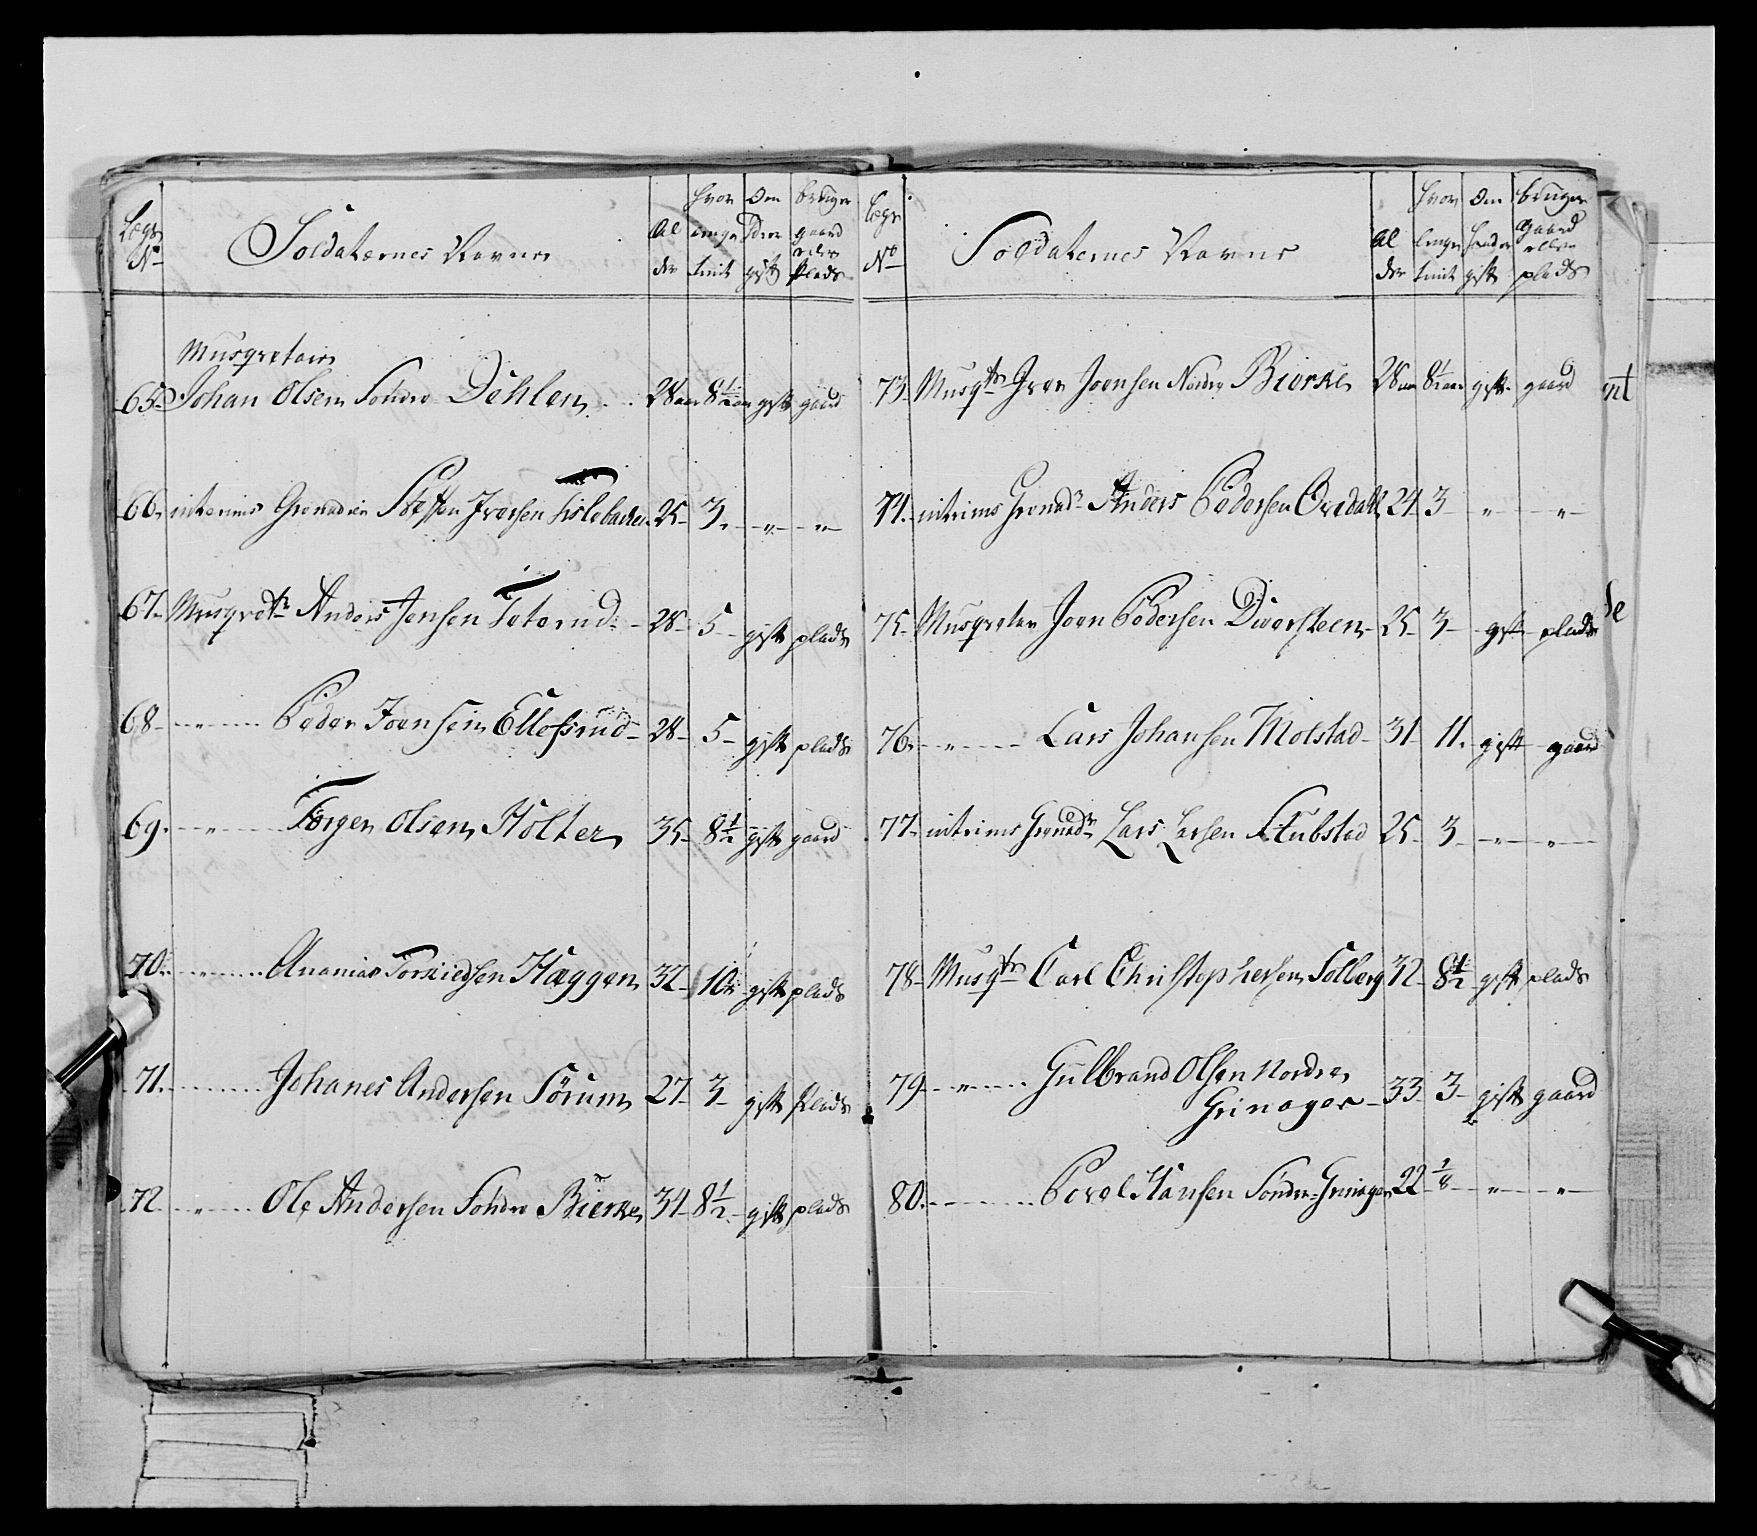 Lægs No
Soldaternes Navne
Al der
hvor længe tient
Om Hand er gift
bruger gaard eller plads
Musqveteer
65. Johan Olsen Søndre Dehlen 28 aar 8½ aar gift gaard
66. interims Grenadeer Steffen Iversen 25 3. " "
67. Musqvetr Anders Jensen Toterud 28 5 gift plads
68 " Peder Joensen Ellefsrud 28 5 gift plads
69. " Torger Olsen Holter 35 8½ gift gaard
70. " Ananias Torkiedsen Hæggen 32 10½ gift plads
71. Johanes Andersen Sörum 27 3 gift plads
72 " Ole Andersen Søndre Bierke 34 8½ gift plads
Lægs No
Soldaternes Navne
Al der
hvor længe tient
Om hand er gift
bruger Gaard eller plads
73. Musqtr Iver Joensen Nordre Bierke 28 aar 8½ aar gift gaard
74. intrims Grenadr Anders Pedersen Ovedahl 24 3 " "
75. Musqveteer Joen Pedersen Diversteen 25 3 gift plads
76. " Lars Johansen Molstad 31 11. gift gaard
77. intrims Grenadr Lars Larsen Stubstad 25 3 " "
78 Musqtr Carl Christophersen Solberg 32 8½ gift plads
79 " Gulbrand Olsen Nordre
Grinager 33 3 gift gaard
80. Povel Hansen Søndre Grinager 22 " "
nt
de